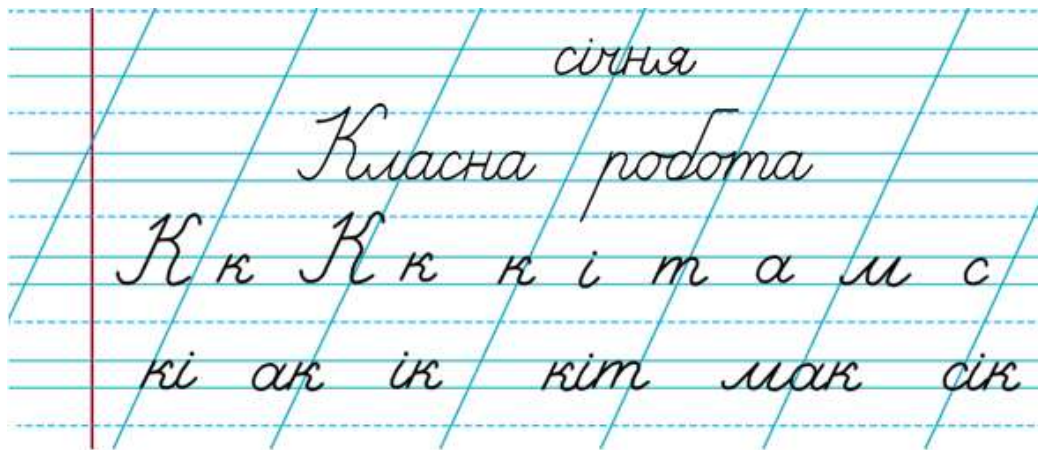 січня
Класна робота
К к К к к і т а м с
кі ак ік кіт мак сік